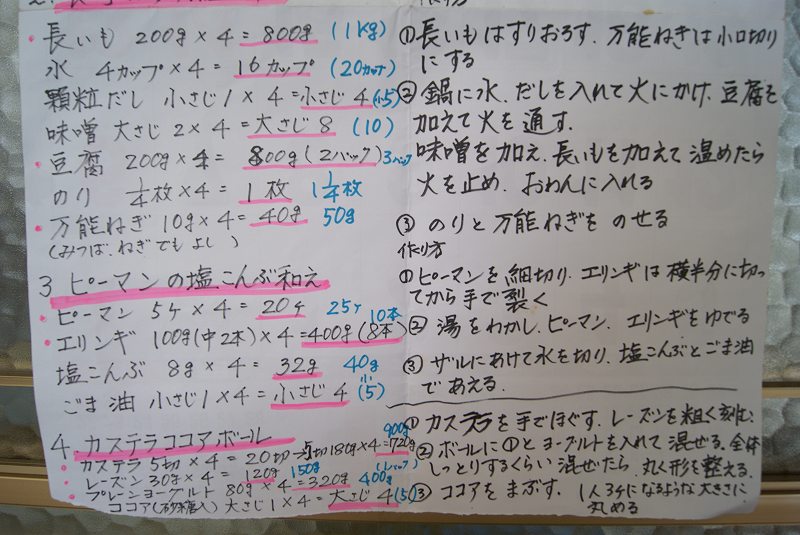 ・長いも 200g × 4 = 800g (1kg)
水 4カップ × 4 = 16カップ (20カップ)
顆粒だし 小さじ1 × 4 = 小さじ4 (小5)
味噌 大さじ2 × 4 = 大さじ8 (10)
・豆腐 200g × 4 = 800g (2パック) 3パック
のり 1/4枚 × 4 = 1枚 1 1/4枚
・万能ねぎ 10g × 4 = 40g 50g
(みつば、ねぎでもよし)
①長いもはすりおろす、万能ねぎは小口切り
にする
②鍋に水、だしを入れて火にかけ、豆腐を
加えて火を通す。
味噌を加え、長いもを加えて温めたら
火を止め、おわんに入れる
③のりと万能ねぎをのせる
3 ピーマンの塩こんぶ和え
・ピーマン 5ヶ × 4 = 20ヶ 25ヶ
・エリンギ 100g(中2本) × 4 = 400g (8本) 10本
塩こんぶ 8g × 4 = 32g 40g
ごま油 小さじ1 × 4 = 小さじ4 小(5)
作り方
①ピーマンを細切り、エリンギは横半分に切っ
てから手で裂く
②湯をわかし、ピーマン、エリンギをゆでる
③ザルにあけて水を切り、塩こんぶとごま油
であえる。
4. カステラココアボール
・カステラ 5切 × 4 = 20切 180g × 4 = 720g 900g
・レーズン 30g × 4 = 120g 150g
プレーンヨーグルト 80g × 4 = 320g 400g (1パック)
ココア(砂糖入) 大さじ1 × 4 = 大さじ4 (5)
①カステラを手でほぐす、レーズンを粗く刻む
②ボールに①とヨーグルトを入れて混ぜる、全体
しっとりするくらい混ぜたら、丸く形を整える。
③ココアをまぶす。 1人3ヶになるような大きさに
丸める